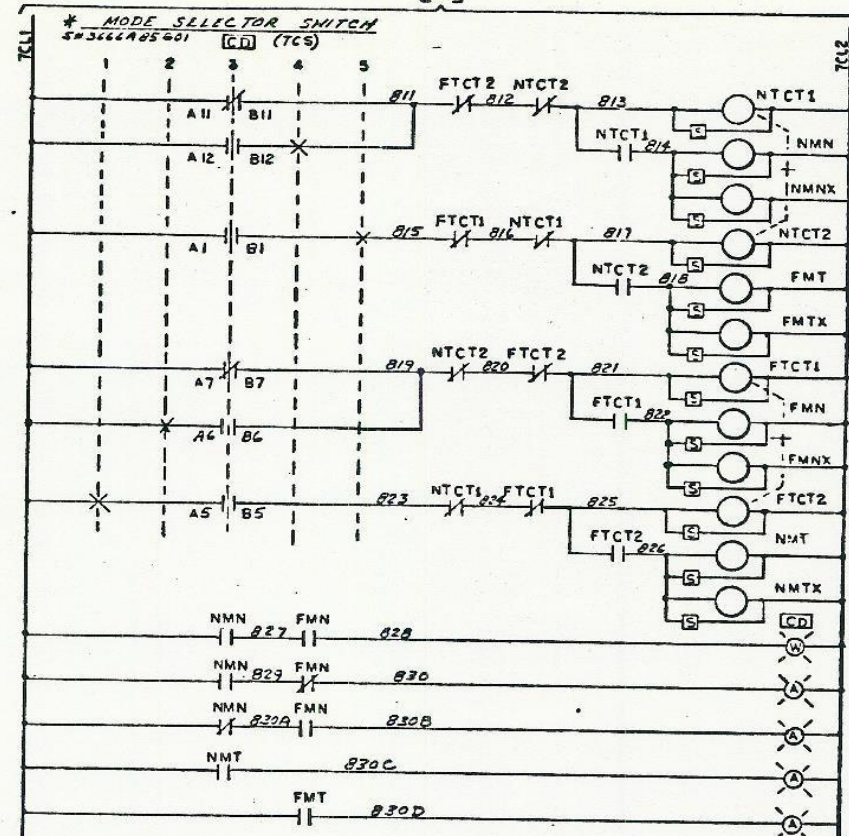 * MODE SELECTOR SWITCH
S#3666A85G01 CD (TCS)
7CL1
7CL2
1 2 3 4 5
A11 B11 811 FTCT2 812 NTCT2 813 NTCT1
A12 B12 NTCT1 814 S NMN
S NMNX
S
A1 B1 815 FTCT1 816 NTCT1 817 NTCT2
NTCT2 818 S FMT
S FMTX
S
A7 B7 819 NTCT2 820 FTCT2 821 FTCT1
A6 B6 FTCT1 822 S FMN
S FMNX
S
A5 B5 823 NTCT1 824 FTCT1 825 FTCT2
FTCT2 826 S NMT
S NMTX
S
CD
NMN 827 FMN 828 W
NMN 829 FMN 830 A
NMN 830A FMN 830B A
NMT 830C A
FMT 830D A